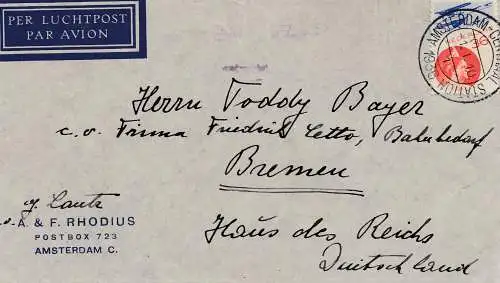 PER LUCHTPOST
PAR AVION
AMSTERDAM-CENTRAAL STATION
Herrn Toddy Bayer
c.o. Firma Friedrich Cetto, Bahnbedarf
Bremen
Haus des Reichs
Duitschland
J. Lautz
A. & F. RHODIUS
POSTBOX 723
AMSTERDAM C.